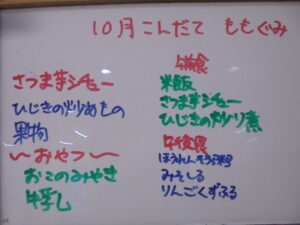 10月こんだて ももぐみ
さつま芋シチュー
ひじきの炒めもの
果物
〜おやつ〜
おこのみやき
牛乳
米飯
さつま芋シチュー
ひじきの炒り煮
午後食
みそしる
りんごくずぶる